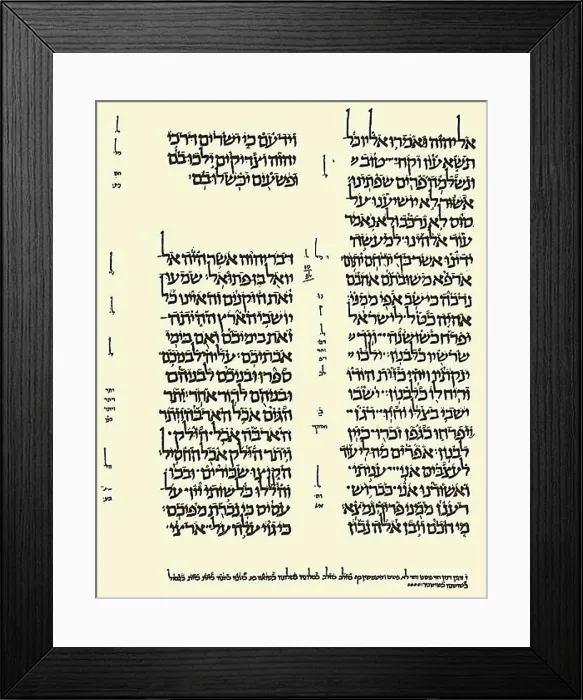 אל יהוה ואמרו אליו כל
תשא עון וקח טוב
ונשלמה פרים שפתינו
אשור לא יושיענו על
סוס לא נרכב ולא נאמר
עוד אלהינו למעשה
ידינו אשר בך ירחם יתום
ארפא משובתם אהבם
נדבה כי שב אפי ממנו
אהיה כטל לישראל
יפרח כשושנה ויך
שרשיו כלבנון ילכו
ינקותיו ויהי כזית הודו
וריח לו כלבנון ישבו
ישבי בצלו יחיו דגן
ויפרחו כגפן זכרו כיין
לבנון אפרים מה לי עוד
לעצבים אני עניתי
ואשורנו אני כברוש
רענן ממני פריך נמצא
מי חכם ויבן אלה נבון
וידעם כי ישרים דרכי
יהוה וצדיקים ילכו בם
ופשעים יכשלו בם
דבר יהוה אשר היה אל
יואל בן פתואל שמעו
זאת הזקנים והאזינו כל
יושבי הארץ ההיתה
זאת בימיכם ואם בימי
אבתיכם עליה לבניכם
ספרו ובניכם לבניהם
ובניהם לדור אחר יתר
הגזם אכל הארבה ויתר
הארבה אכל הילק
ויתר הילק אכל החסיל
הקיצו שכורים ובכו
והללו כל שותי יין על
עסיס כי נכרת מפיכם
כי גוי עלה על ארצי